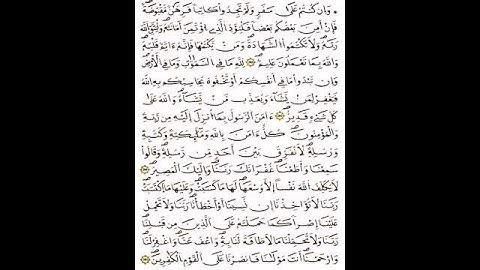 وَإِن كُنتُمْ عَلَىٰ سَفَرٍ وَلَمْ تَجِدُوا۟ كَاتِبًا فَرِهَٰنٌ مَّقْبُوضَةٌ
فَإِنْ أَمِنَ بَعْضُكُم بَعْضًا فَلْيُؤَدِّ ٱلَّذِى ٱؤْتُمِنَ أَمَٰنَتَهُۥ وَلْيَتَّقِ ٱللَّهَ
رَبَّهُۥ وَلَا تَكْتُمُوا۟ ٱلشَّهَٰدَةَ وَمَن يَكْتُمْهَا فَإِنَّهُۥٓ ءَاثِمٌ قَلْبُهُۥ
وَٱللَّهُ بِمَا تَعْمَلُونَ عَلِيمٌ ۝ لِّلَّهِ مَا فِى ٱلسَّمَٰوَٰتِ وَمَا فِى ٱلْأَرْضِ
وَإِن تُبْدُوا۟ مَا فِىٓ أَنفُسِكُمْ أَوْ تُخْفُوهُ يُحَاسِبْكُم بِهِ ٱللَّهُ
فَيَغْفِرُ لِمَن يَشَآءُ وَيُعَذِّبُ مَن يَشَآءُ وَٱللَّهُ عَلَىٰ
كُلِّ شَىْءٍ قَدِيرٌ ۝ ءَامَنَ ٱلرَّسُولُ بِمَآ أُنزِلَ إِلَيْهِ مِن رَّبِّهِۦ
وَٱلْمُؤْمِنُونَ كُلٌّ ءَامَنَ بِٱللَّهِ وَمَلَٰٓئِكَتِهِۦ وَكُتُبِهِۦ
وَرُسُلِهِۦ لَا نُفَرِّقُ بَيْنَ أَحَدٍ مِّن رُّسُلِهِۦ وَقَالُوا۟
سَمِعْنَا وَأَطَعْنَا غُفْرَانَكَ رَبَّنَا وَإِلَيْكَ ٱلْمَصِيرُ ۝
لَا يُكَلِّفُ ٱللَّهُ نَفْسًا إِلَّا وُسْعَهَا لَهَا مَا كَسَبَتْ وَعَلَيْهَا مَا ٱكْتَسَبَتْ
رَبَّنَا لَا تُؤَاخِذْنَآ إِن نَّسِينَآ أَوْ أَخْطَأْنَا رَبَّنَا وَلَا تَحْمِلْ
عَلَيْنَآ إِصْرًا كَمَا حَمَلْتَهُۥ عَلَى ٱلَّذِينَ مِن قَبْلِنَا
رَبَّنَا وَلَا تُحَمِّلْنَا مَا لَا طَاقَةَ لَنَا بِهِۦ وَٱعْفُ عَنَّا وَٱغْفِرْ لَنَا
وَٱرْحَمْنَآ أَنتَ مَوْلَىٰنَا فَٱنصُرْنَا عَلَى ٱلْقَوْمِ ٱلْكَٰفِرِينَ ۝